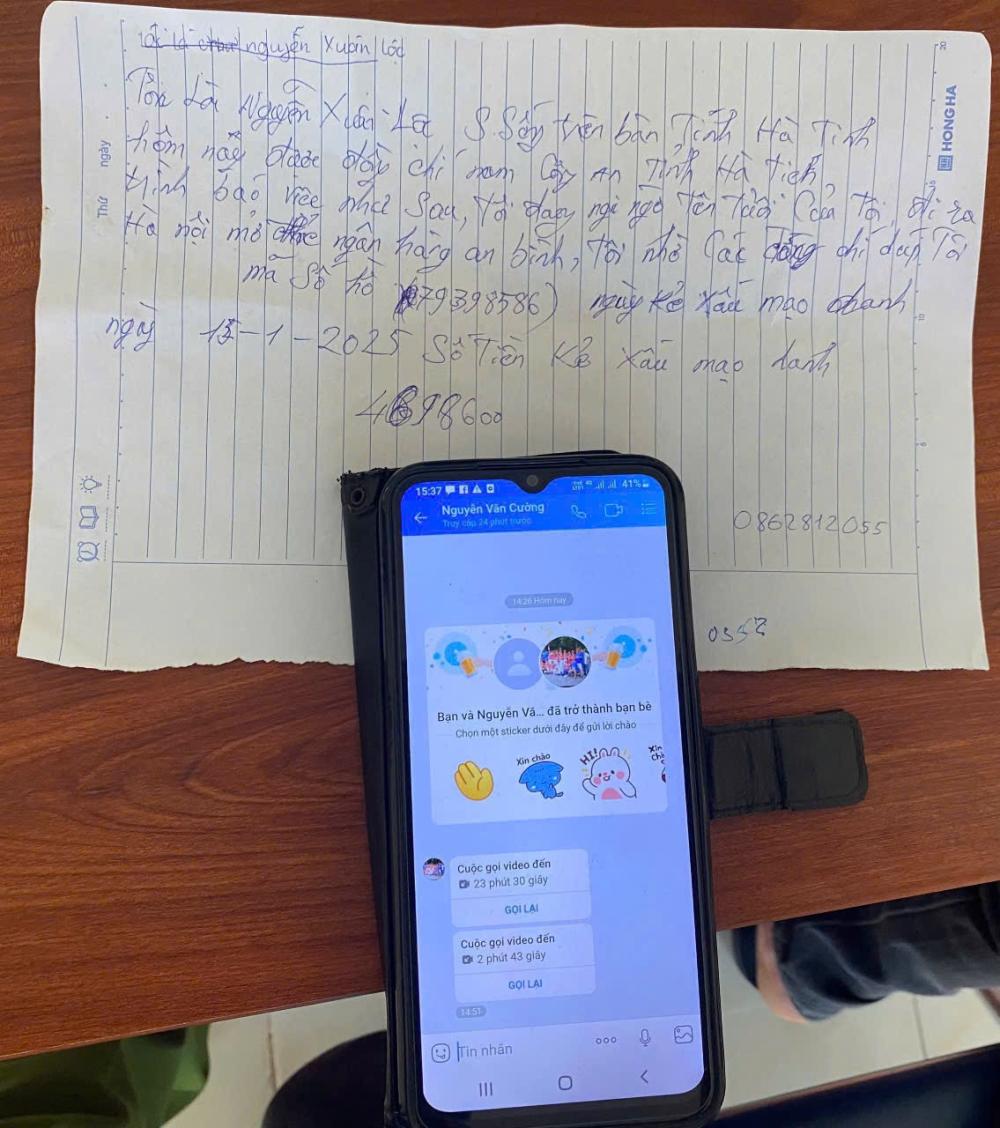 nguyễn Xuân Lộc
Tôi Là Nguyễn Xuân Lộc S.Sống trên bàn Tỉnh Hà Tỉnh
hôm nay được đồng chí nam Công An Tỉnh Hà
trình báo việc như Sau, Tôi đang ngi ngờ Tên Tuổi Của Tôi, đi ra
Hà nội mở thẻ ngân hàng an bình, Tôi nhờ Các đồng chí
mã Số hồ (079398586) ngày Kẻ Xấu mạo danh
ngày 13-1-2025 Số Tiền Kẻ Xấu mạo danh
4698600
0862812055
0353
HONG HA
Thứ ngày
15:37 41%
Nguyễn Văn Cường
Truy cập 24 phút trước
14:26 Hôm nay
Bạn và Nguyễn Vă... đã trở thành bạn bè
Chọn một sticker dưới đây để gửi lời chào
Xin chào
HI!
Cuộc gọi video đến
23 phút 30 giây
GỌI LẠI
Cuộc gọi video đến
2 phút 43 giây
GỌI LẠI
14:51
Tin nhắn